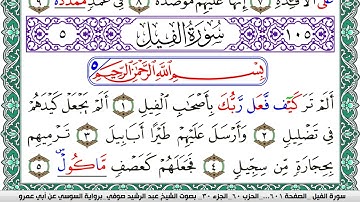 عَلَى ٱلْأَفْـِٔدَةِ ٧ إِنَّهَا عَلَيْهِم مُّوصَدَةٌ ٨ فِي عَمَدٍ مُّمَدَّدَةٍ ٩
١٠٥ سُورَةُ الفِيلِ ٥
بِسْمِ اللَّهِ الرَّحْمَٰنِ الرَّحِيمِ
أَلَمْ تَرَ كَيْف فَّعَل رَّبُّكَ بِأَصْحَٰبِ ٱلْفِيلِ ١ أَلَمْ يَجْعَلْ كَيْدَهُمْ
فِي تَضْلِيلٍ ٢ وَأَرْسَلَ عَلَيْهِمْ طَيْرًا أَبَابِيلَ ٣ تَرْمِيهِم
بِحِجَارَةٍ مِّن سِجِّيلٍ ٤ فَجَعَلَهُمْ كَعَصْفٍ مَّاكُولٍ ٥
سورة الفيل الصفحة ٦٠١ ... الحزب ٦٠ الجزء ٣٠ بصوت الشيخ عبد الرشيد صوفي برواية السوسي عن أبي عمرو